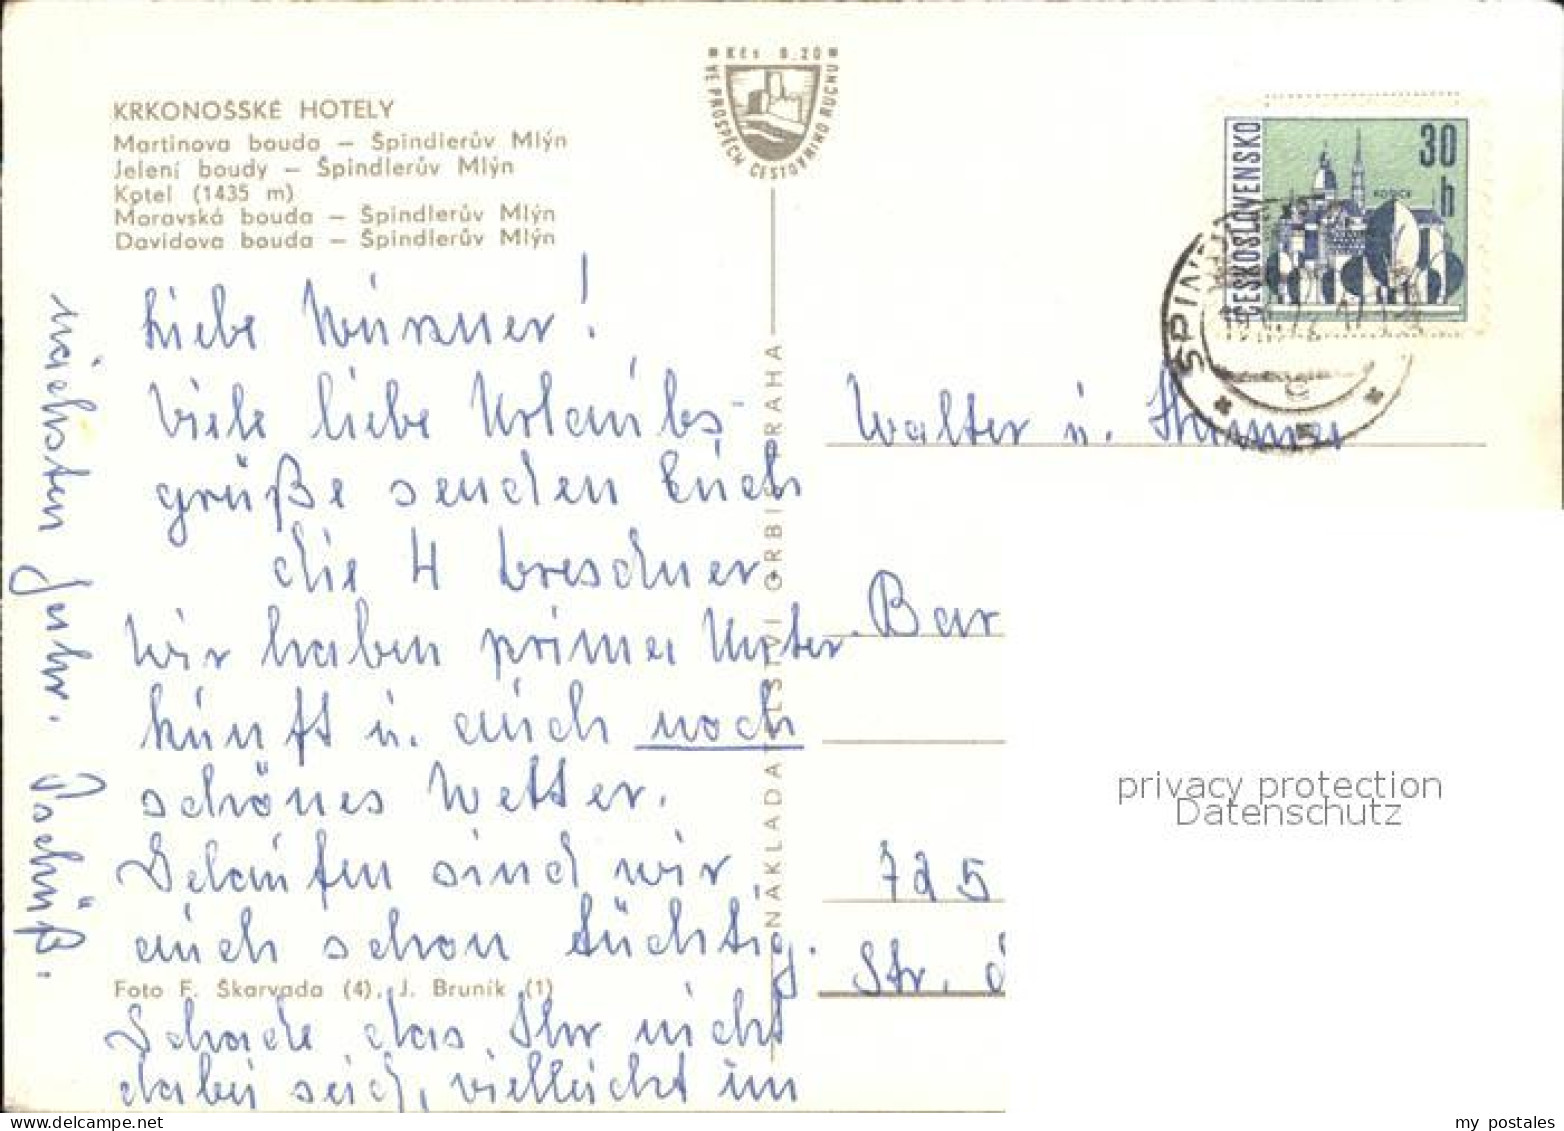 KRKONOŠSKÉ HOTELY
Martinova bouda – Špindlerův Mlýn
Jelení boudy – Špindlerův Mlýn
Kotel (1435 m)
Moravská bouda – Špindlerův Mlýn
Davidova bouda – Špindlerův Mlýn
Kčs 0.20
VE PROSPĚCH CESTOVNÍHO RUCHU
ČESKOSLOVENSKO
30
h
KOŠICE
Liebe
!
Viele liebe Urlaubs-
grüße senden Euch
die 4 Dresdner.
Wir haben prima Unter-
kunft u. auch noch
schönes Wetter.
Gelaufen sind wir
auch schon tüchtig.
Schade das Ihr nicht
dabei seid, vielleicht im
nächsten Jahr. Tschüß.
Foto F. Škarvada (4), J. Bruník (1)
NAKLADATELSTVÍ ORBIS PRAHA
Walter u.
Bar
725
Str. d
privacy protection
Datenschutz
my postales